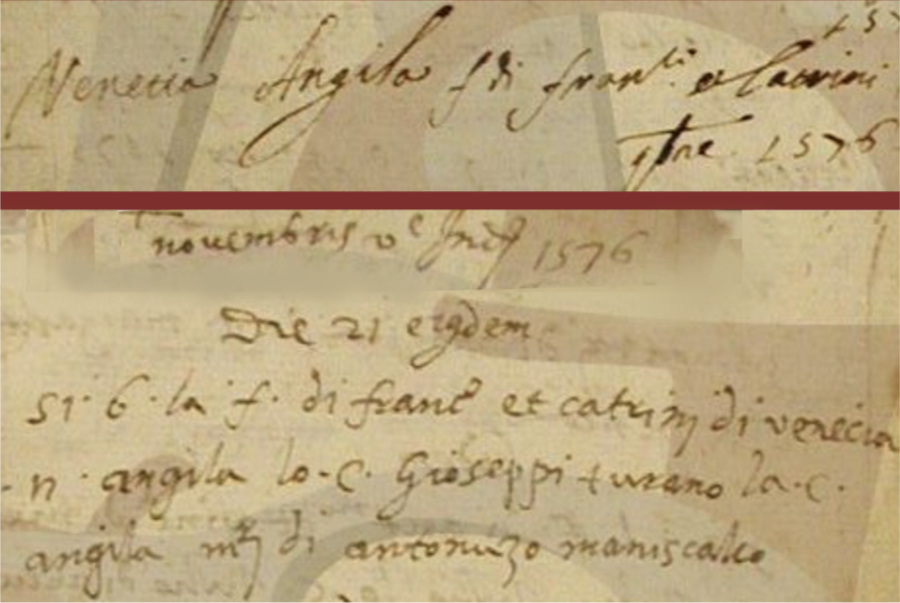 157
Venecia Angila f di franci e Catrini
9bre 1576
novembris ve Ind 1576
Die 21 eiqdem
si· 6· la f· di franco et catrinj di venecia
n· angila lo· c· Gioseppi turano la· c·
angila mj di antonuzo maniscalco